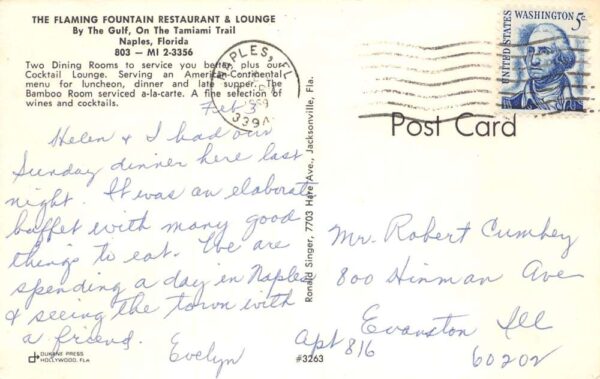 THE FLAMING FOUNTAIN RESTAURANT & LOUNGE
By The Gulf, On The Tamiami Trail
Naples, Florida
803 — MI 2-3356
Two Dining Rooms to service you better, plus our
Cocktail Lounge. Serving an American-Continental
menu for luncheon, dinner and late supper. The
Bamboo Room serviced a-la-carte. A fine selection of
wines and cocktails.
Feb 3
Helen & I had our
Sunday dinner here last
night. It was an elaborate
buffet with many good
things to eat. We are
spending a day in Naples
& seeing the town with
a friend.
Evelyn
DUKANE PRESS
HOLLYWOOD, FLA
Ronald Singer, 7703 Hare Ave., Jacksonville, Fla.
#3263
NAPLES, FL
1969
UNITED STATES
WASHINGTON 5c
Post Card
Mr. Robert Cumbey
800 Hinman Ave
Evanston Ill
Apt 816
60202